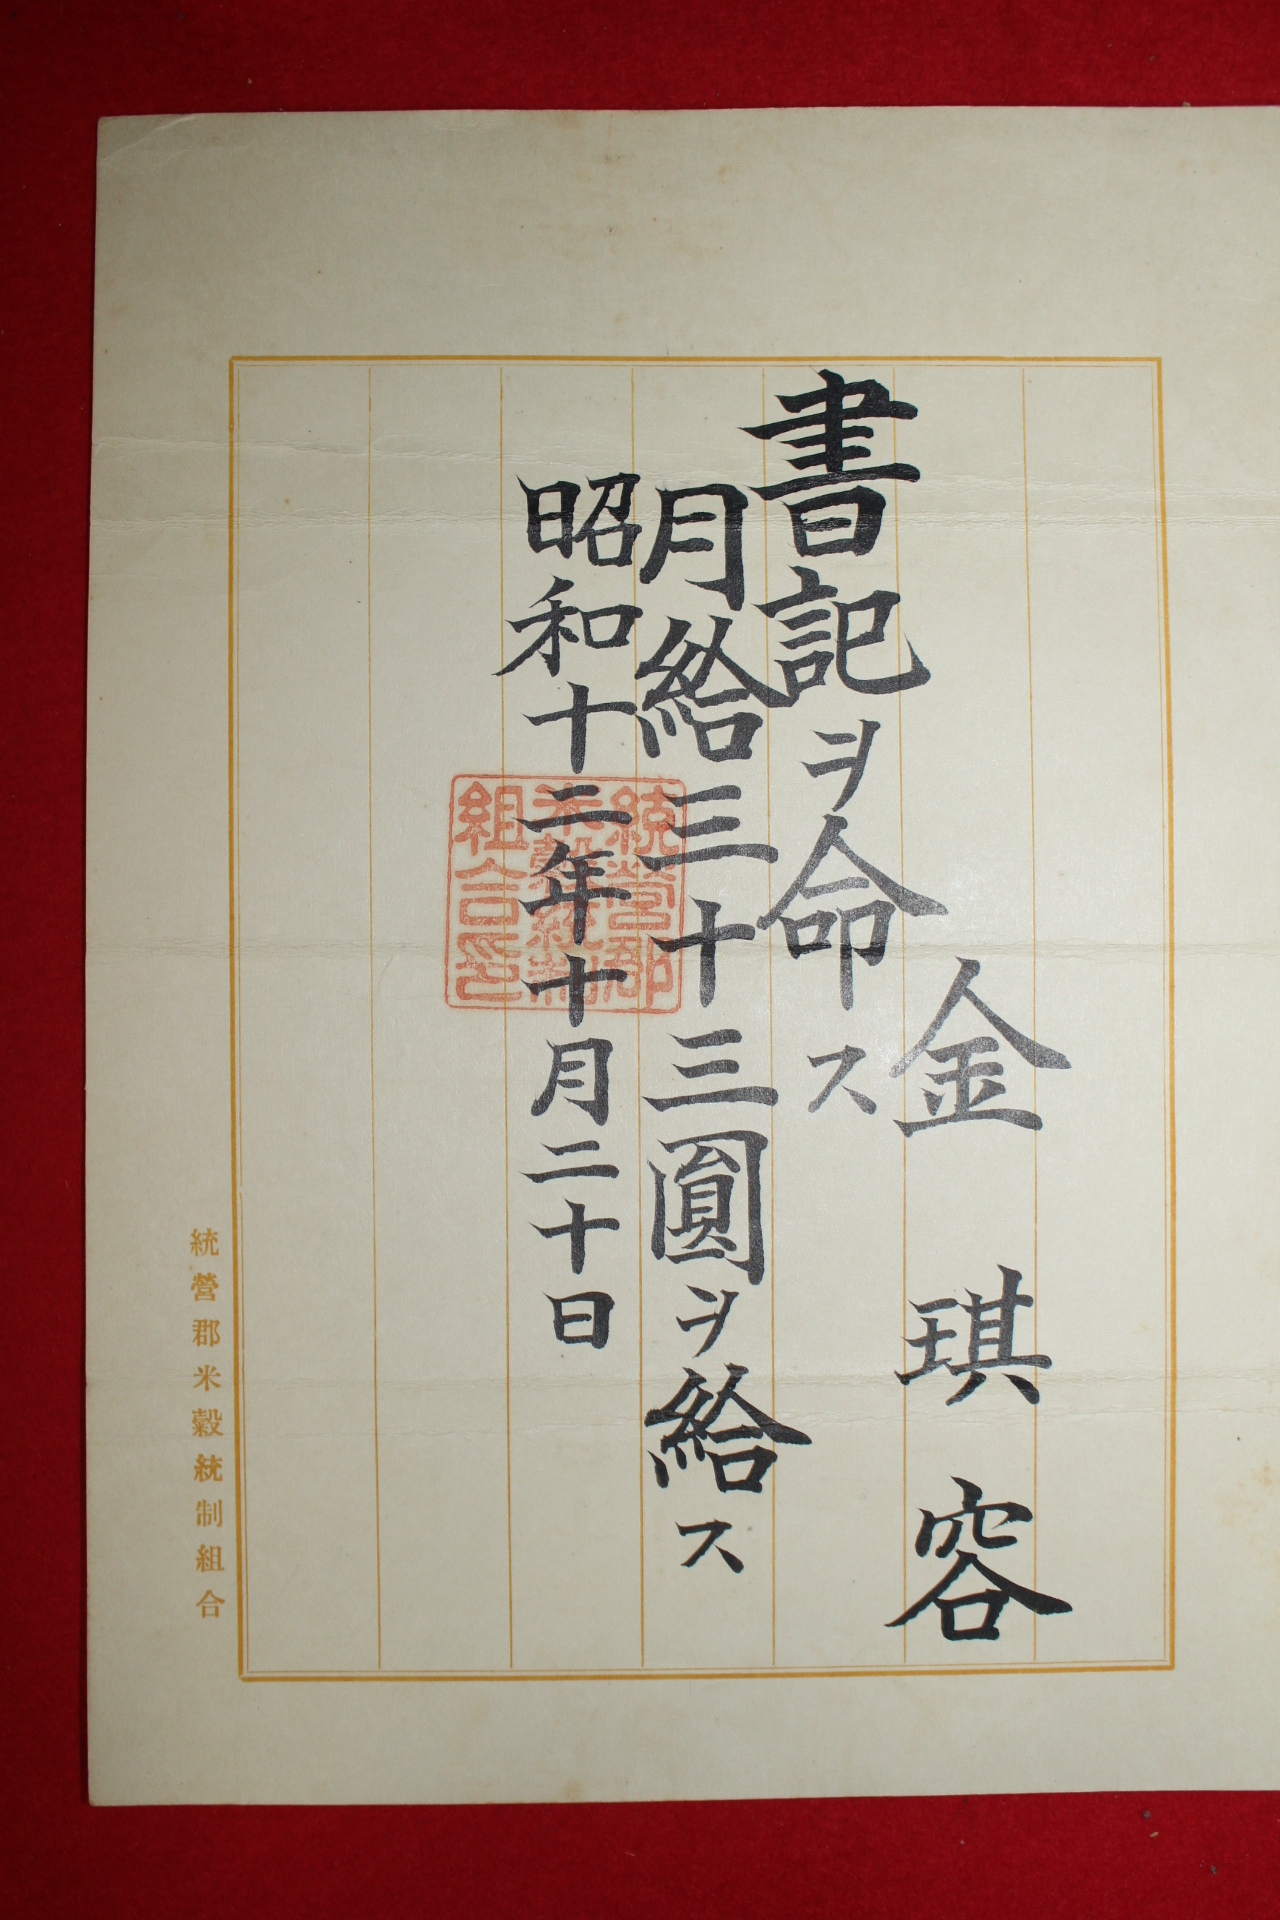 金琪容
書記ヲ命ス
月給三十三圓ヲ給ス
昭和十二年十月二十日
統營郡
米穀統制
組合印
統營郡米穀統制組合